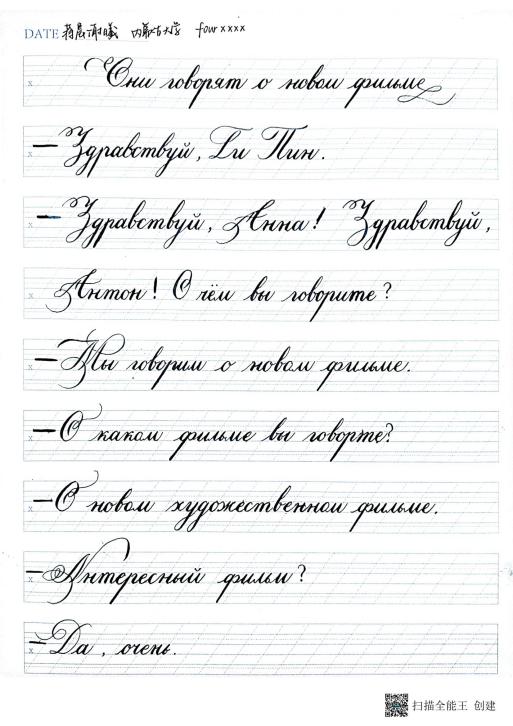 DATE 内蒙古大学 four xxxx
Они говорят о новом фильме
— Здравствуй, Ги Пин.
— Здравствуй, Анна! Здравствуй,
Антон! О чём вы говорите?
— Мы говорим о новом фильме.
— О каком фильме вы говорте?
— О новом художественном фильме.
— Интересный фильм?
— Да, очень.
扫描全能王 创建